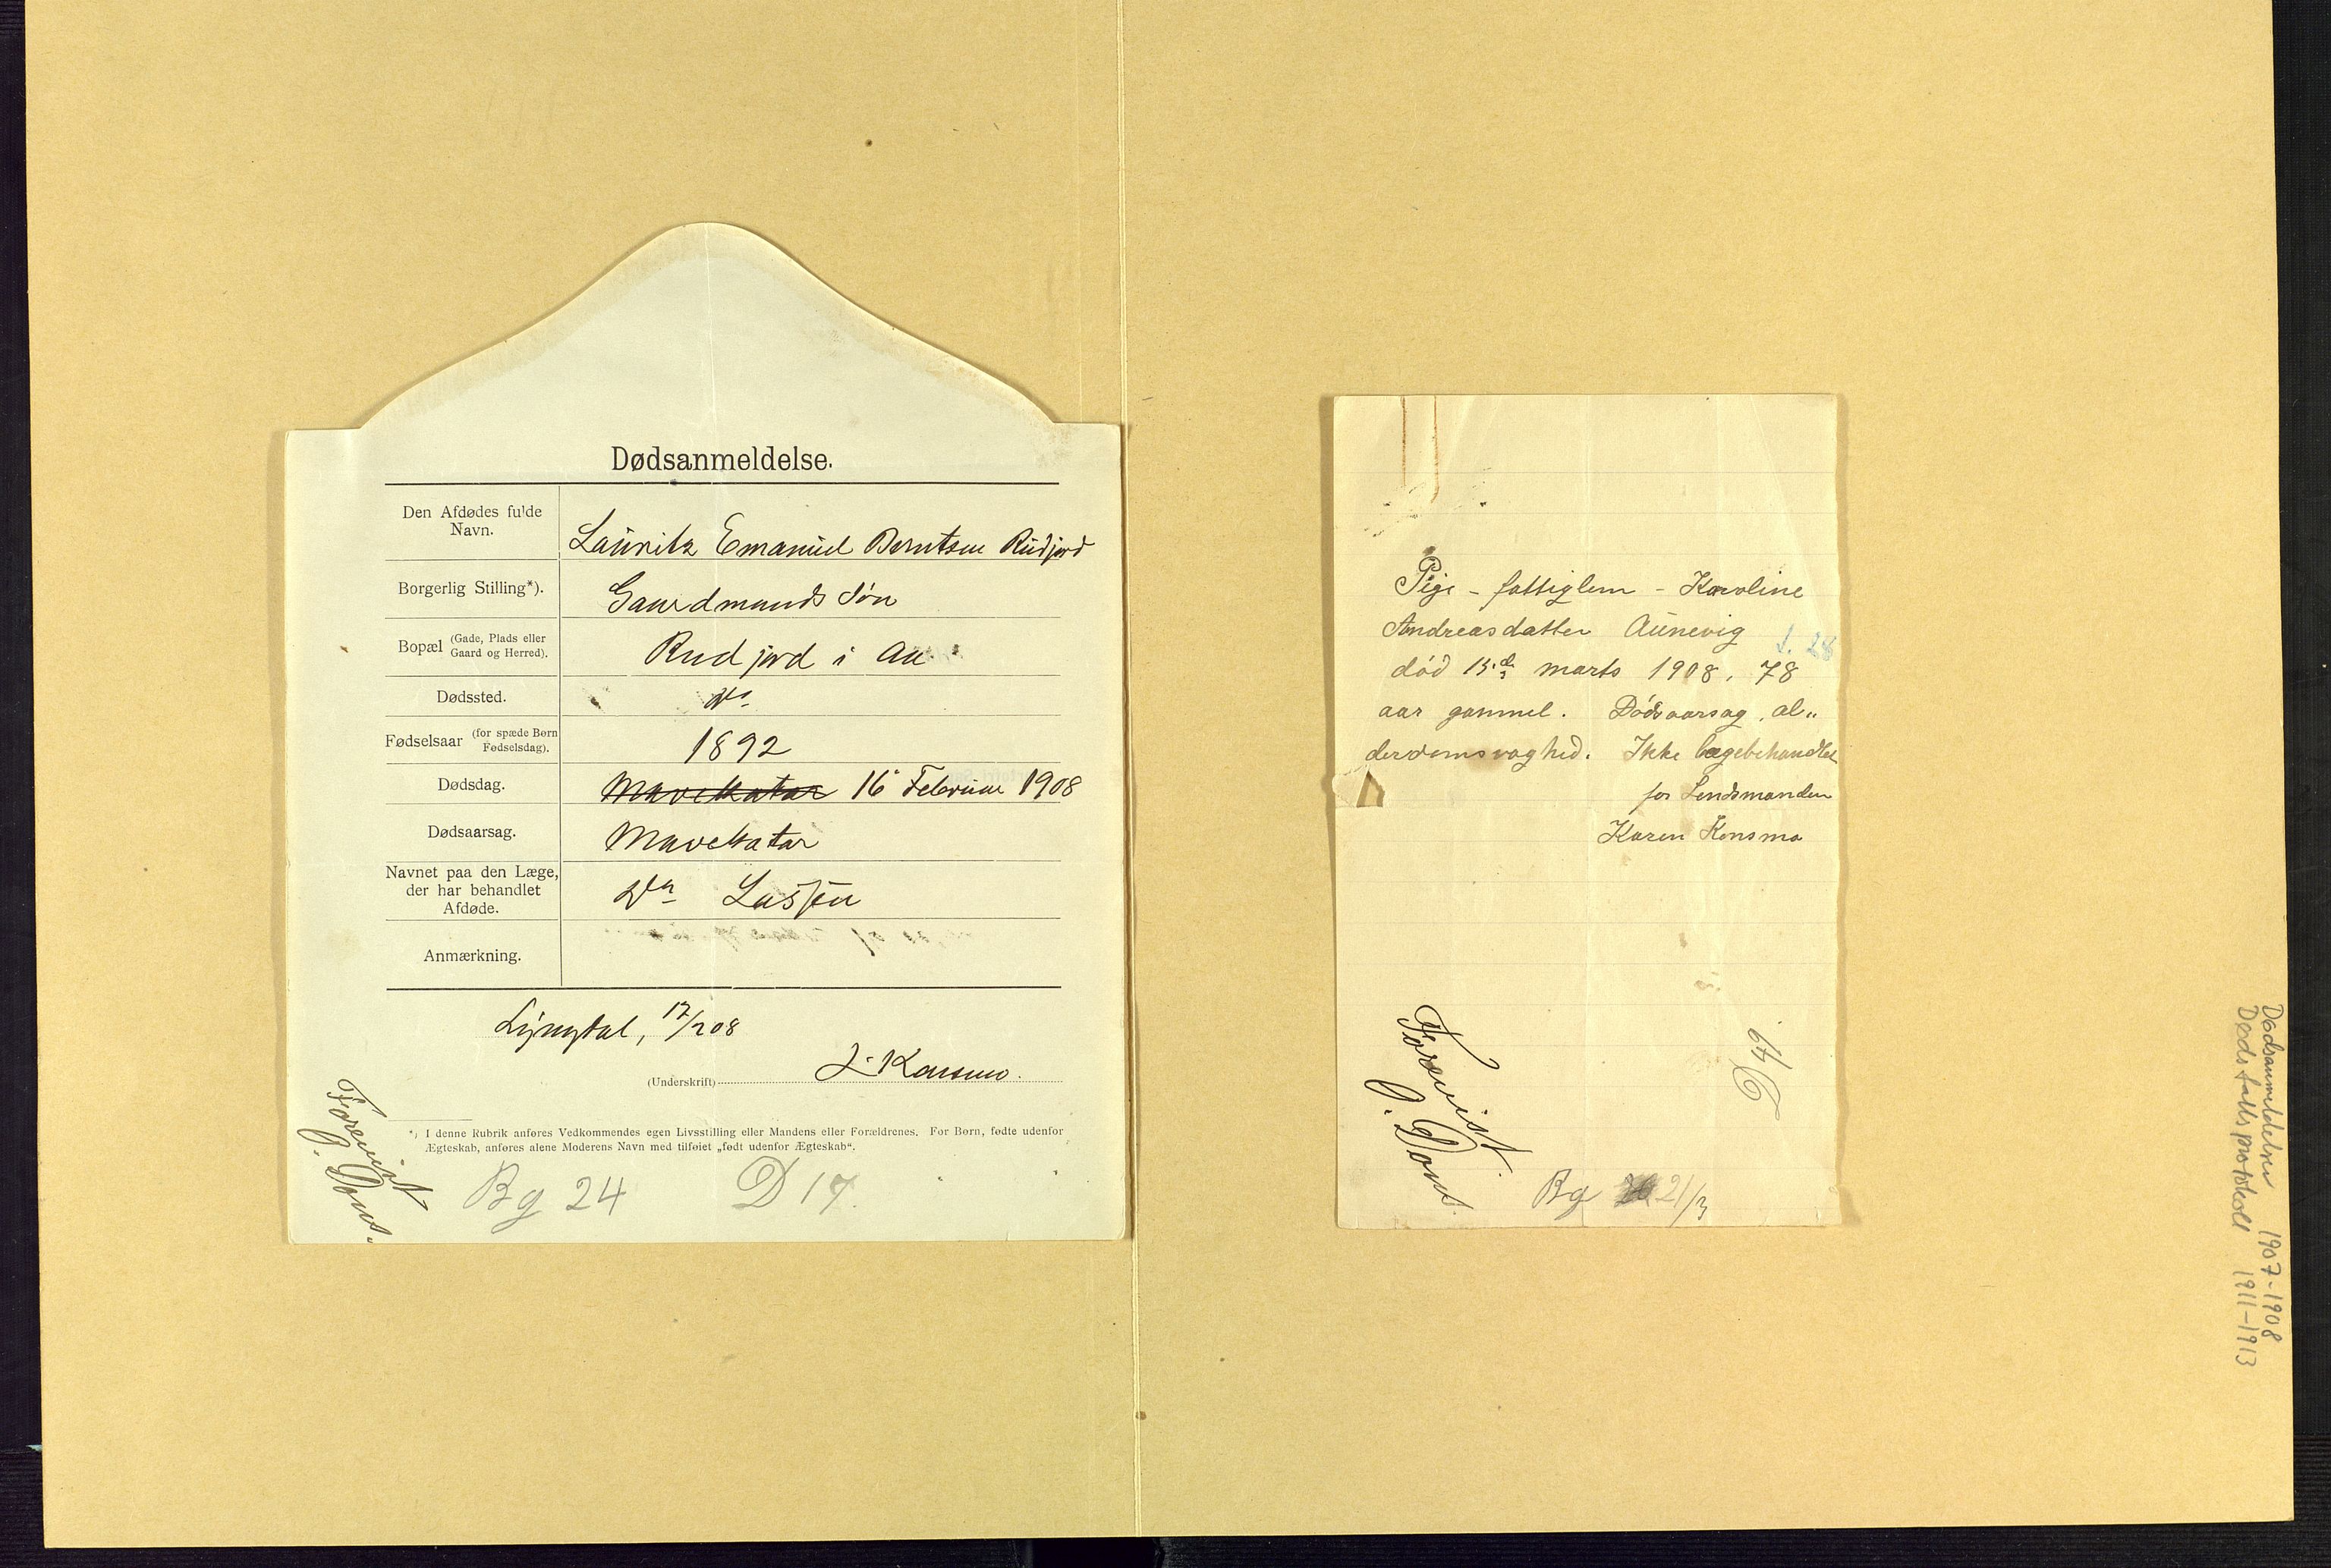 Dødsanmeldelse.
Den Afdødes fulde
Navn.
Lauritz Emanuel Berntsen Rudjord
Borgerlig Stilling*).
Gaardmands Søn
Bopæl (Gade, Plads eller
Gaard og Herred).
Rudjord i Au
Dødssted.
do
Fødselsaar (for spæde Børn
Fødselsdag).
1892
Dødsdag.
Mavekatar 16 Februar 1908
Dødsaarsag.
Mavekatar
Navnet paa den Læge,
der har behandlet
Afdøde.
Dr Lassen
Anmærkning.
Lyngdal, 17/2 08
(Underskrift) L. Konsmo.
*) I denne Rubrik anføres Vedkommendes egen Livsstilling eller Mandens eller Forældrenes. For Børn, fødte udenfor
Ægteskab, anføres alene Moderens Navn med tilføiet „født udenfor Ægteskab“.
Forevist
J. Dons.
Bg 24 D 17.
Pige - fattiglem - Karoline
Andreasdatter Aunevig
død 13.de marts 1908, 78
aar gammel. Dødsaarsag, al„
derdomsvaghed. Ikke lægebehandlet
for Lendsmanden
Karen Konsmo
Forevist.
J. Dons.
Bg 21/3
Dødsanmeldelser 1907-1908
Dødsfallsprotokoll 1911-1913